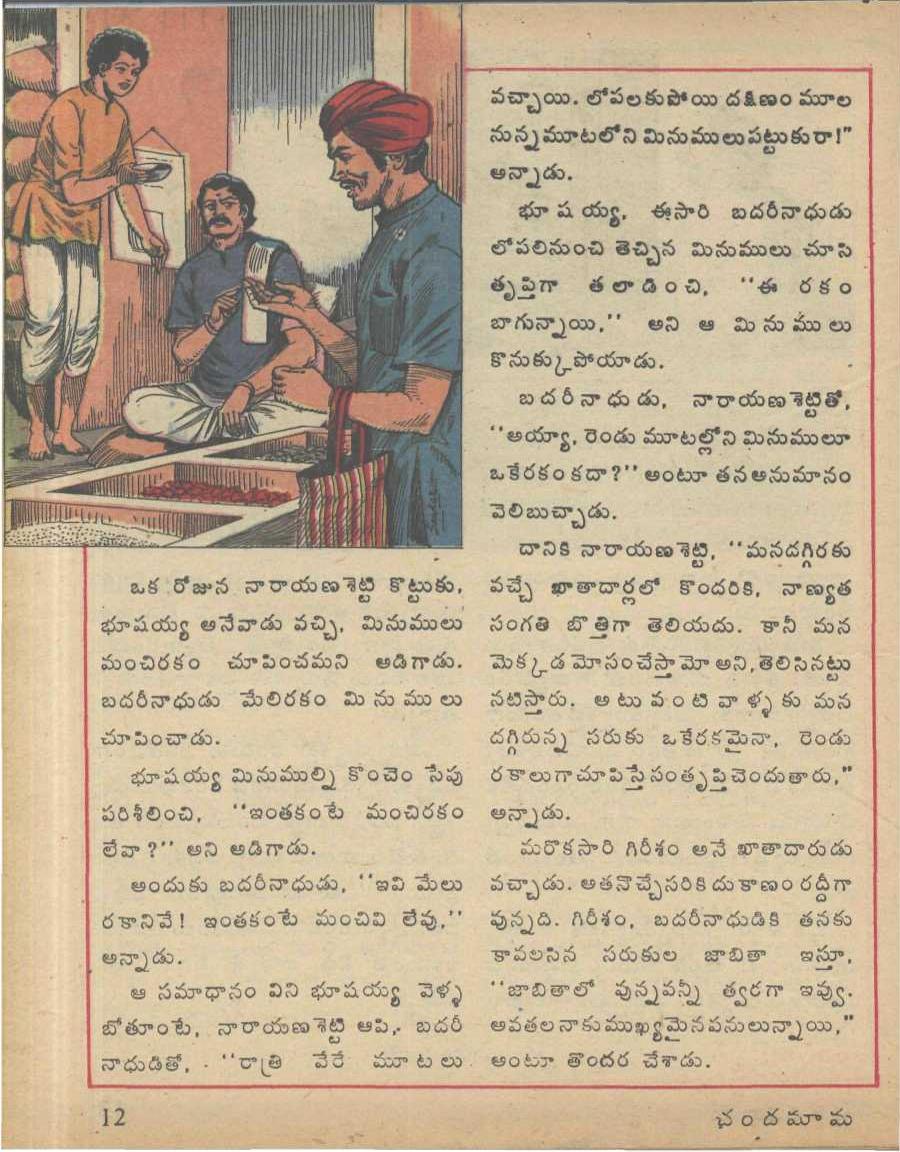 ఒక రోజున నారాయణశెట్టి కొట్టుకు,
భూషయ్య అనేవాడు వచ్చి, మినుములు
మంచిరకం చూపించమని అడిగాడు.
బదరీనాధుడు మేలిరకం మినుములు
చూపించాడు.
భూషయ్య మినుముల్ని కొంచెం సేపు
పరిశీలించి, ‘‘ఇంతకంటే మంచిరకం
లేవా?’’ అని అడిగాడు.
అందుకు బదరీనాధుడు, ‘‘ఇవి మేలు
రకానివే! ఇంతకంటే మంచివి లేవు,’’
అన్నాడు.
ఆ సమాధానం విని భూషయ్య వెళ్ళ
బోతూంటే, నారాయణశెట్టి ఆపి, బదరీ
నాధుడితో, ‘‘రాత్రి వేరే మూటలు
వచ్చాయి. లోపలకుపోయి దక్షిణం మూల
నున్నమూటలోని మినుములుపట్టుకురా!’’
అన్నాడు.
భూషయ్య, ఈసారి బదరీనాధుడు
లోపలినుంచి తెచ్చిన మినుములు చూసి
తృప్తిగా తలాడించి, ‘‘ఈ రకం
బాగున్నాయి,’’ అని ఆ మినుములు
కొనుక్కుపోయాడు.
బదరీనాధుడు, నారాయణశెట్టితో,
‘‘అయ్యా, రెండు మూటల్లోని మినుములూ
ఒకేరకంకదా?’’ అంటూ తనఅనుమానం
వెలిబుచ్చాడు.
దానికి నారాయణశెట్టి, ‘‘మనదగ్గిరకు
వచ్చే ఖాతాదార్లలో కొందరికి, నాణ్యత
సంగతి బొత్తిగా తెలియదు. కానీ మన
మెక్కడ మోసంచేస్తామోఅని,తెలిసినట్టు
నటిస్తారు. అటువంటివాళ్ళకు మన
దగ్గిరున్న సరుకు ఒకేరకమైనా, రెండు
రకాలుగాచూపిస్తేసంతృప్తిచెందుతారు,’’
అన్నాడు.
మరొకసారి గిరీశం అనే ఖాతాదారుడు
వచ్చాడు. అతనొచ్చేసరికిదుకాణంరద్దీగా
వున్నది. గిరీశం, బదరీనాధుడికి తనకు
కావలసిన సరుకుల జాబితా ఇస్తూ,
‘‘జాబితాలో వున్నవన్నీ త్వరగా ఇవ్వు.
అవతలనాకుముఖ్యమైనపనులున్నాయి,’’
అంటూ తొందర చేశాడు.
12
చందమామ